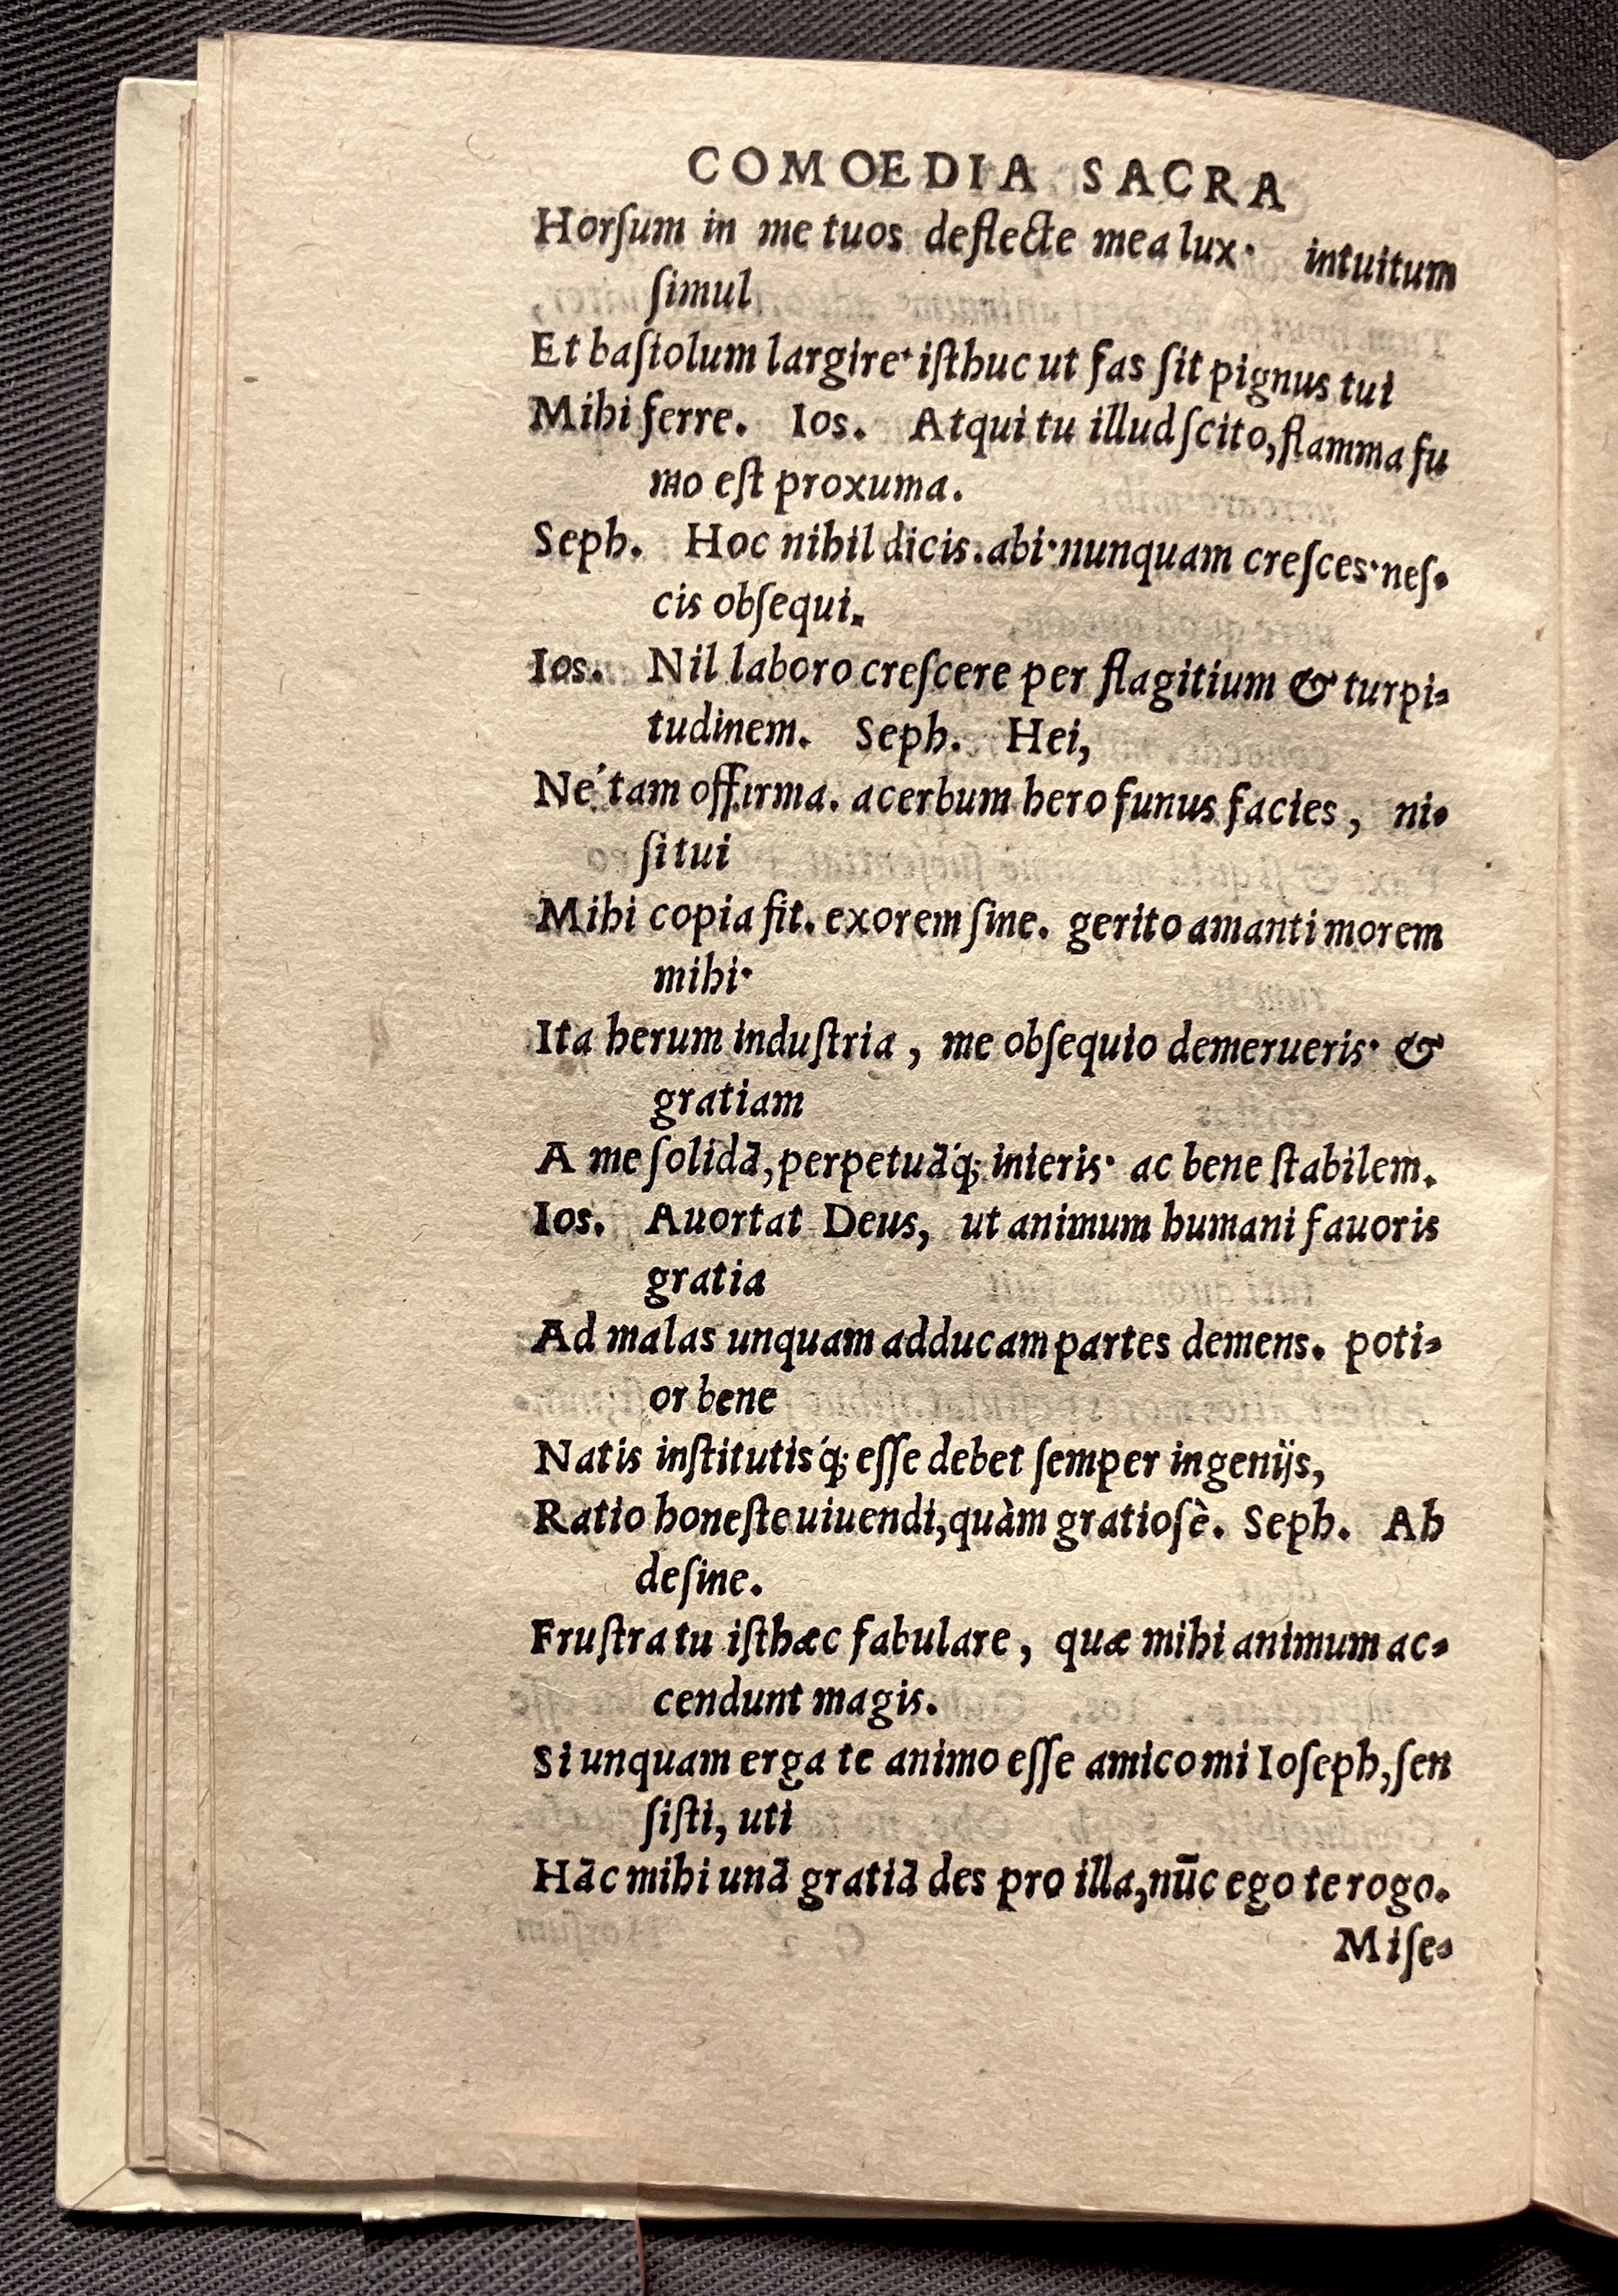 COMOEDIA SACRA
Horſum in me tuos deflecte mea lux· intuitum
ſimul
Et baſiolum largire· iſthuc ut fas ſit pignus tui
Mihi ferre. Ios. Atqui tu illud ſcito, flamma fu
mo eſt proxuma.
Seph. Hoc nihil dicis. abi· nunquam creſces· neſ-
cis obſequi.
Ios. Nil laboro creſcere per flagitium & turpi-
tudinem. Seph. Hei,
Né tam offirma. acerbum hero funus facies, ni-
ſi tui
Mihi copia fit. exorem ſine. gerito amanti morem
mihi·
Ita herum induſtria, me obſequio demerueris· &
gratiam
A me ſolidā, perpetuāq́; inieris· ac bene ſtabilem.
Ios. Auortat Deus, ut animum humani fauoris
gratia
Ad malas unquam adducam partes demens. poti-
or bene
Natis inſtitutisq́; eſſe debet ſemper ingenijs,
Ratio honeſte uiuendi, quàm gratioſè. Seph. Ah
deſine.
Fruſtra tu iſthæc fabulare, quæ mihi animum ac-
cendunt magis.
Si unquam erga te animo eſſe amico mi Ioſeph, ſen
ſiſti, uti
Hāc mihi unā gratiā des pro illa, nūc ego te rogo.
Miſe-